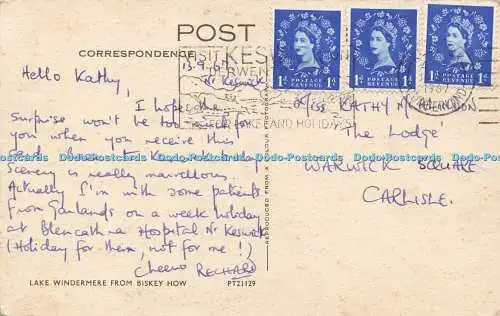 POST
CORRESPONDENCE
15.9.6
Nr Keswick
Hello Kathy,
I hope the
Surprise won't be too much for
you when you receive this
scenery is really marvellous.
Actually I'm with some patients
from Garlands on a week holiday
at Blencathra Hospital Nr Keswick
(Holiday for them, not for me!)
Cheerio RICHARD
LAKE WINDERMERE FROM BISKEY HOW PT21129
REPRODUCED FROM A COLOUR
VISIT KESWICK
DERWEN
FOR LAKELAND HOLIDAYS
1D POSTAGE REVENUE 1D
1D POSTAGE REVENUE 1D
1D POSTAGE REVENUE 1D
MISS KATHY
The Lodge
WARWICK SQUARE
CARLISLE.
Dodo-Postcards Dodo-Postcards Dodo-Postcards Dodo-Postcards Dodo-Postcards